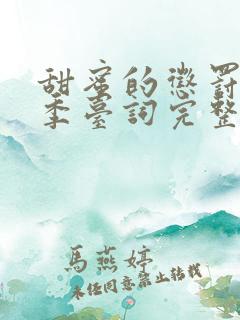 甜蜜的懲罰
季臺詞完整
馬燕婷
未經同意禁止轉載